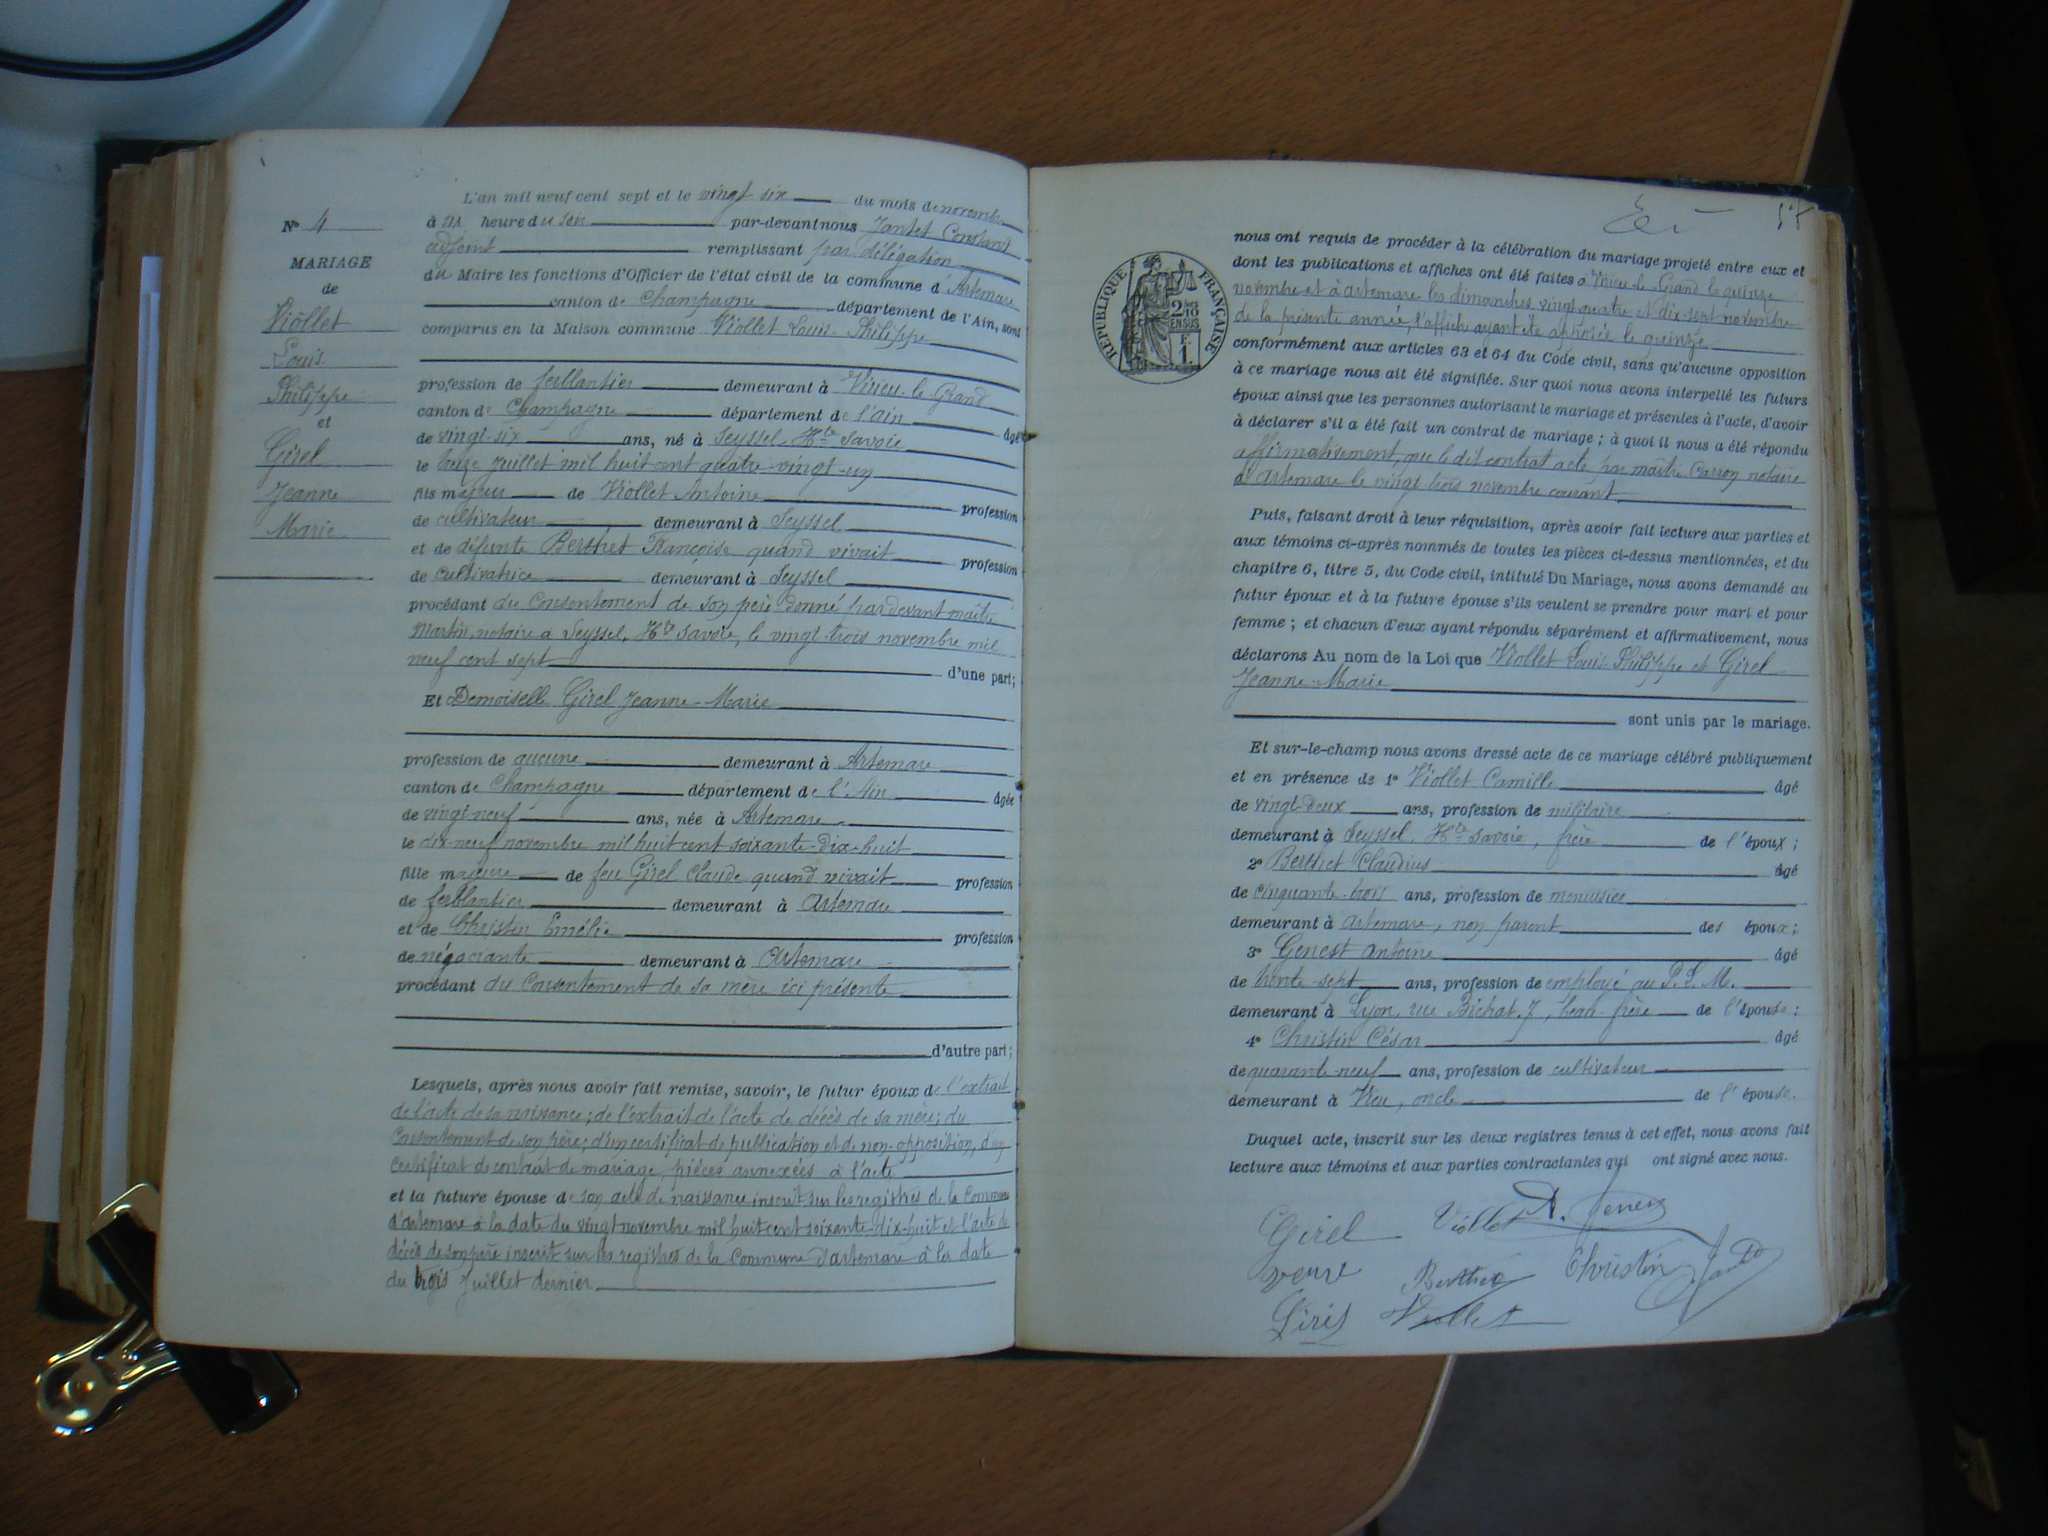 L'an mil neuf cent sept et le vingt six du mois de novembre
à six heure du soir par-devant nous Jantet Constant
adjoint remplissant par délégation
du Maire les fonctions d'Officier de l'état civil de la commune d'Artemare
canton de Champagne département de l'Ain, sont
comparus en la Maison commune Viollet Louis-Philippe
profession de ferblantier demeurant à Virieu-le-Grand
canton de Champagne département de l'ain âgé
de vingt-six ans, né à Seyssel, Hte Savoie
le treize juillet mil huit cent quatre-vingt-un
fils majeur de Viollet Antoine profession
de cultivateur demeurant à Seyssel
et de défunte Berthet Françoise quand vivait profession
de cultivatrice demeurant à Seyssel
procédant du Consentement de son père donné par devant maître
Martin, notaire à Seyssel, Hte Savoie, le vingt-trois novembre mil
neuf cent sept d'une part;
Et Demoiselle Girel Jeanne-Marie
profession de aucune demeurant à Artemare
canton de Champagne département de l'Ain âgée
de vingt-neuf ans, née à Artemare
le dix-neuf novembre mil huit cent soixante-dix-huit
fille majeure de feu Girel Claude quand vivait profession
de ferblantier demeurant à Artemare
et de Christin Emélie profession
de négociante demeurant à Artemare
procédant du Consentement de sa mère ici présente
d'autre part;
Lesquels, après nous avoir fait remise, savoir, le futur époux de l'extrait
de l'acte de sa naissance; de l'extrait de l'acte de décès de sa mère; du
Consentement de son père; d'un certificat de publication et de non-opposition, d'un
certificat de contrat de mariage, pièces annexées à l'acte
et la future épouse de son acte de naissance inscrit sur les registres de la Commune
d'Artemare à la date du vingt novembre mil huit cent soixante-dix-huit et l'acte de
décès de son père inscrit sur les registres de la Commune d'Artemare à la date
du trois juillet dernier
No 4
MARIAGE
de
Viollet
Louis
Philippe
et
Girel
Jeanne
Marie
RÉPUBLIQUE FRANÇAISE
2/10 EN SUS
1 F.
nous ont requis de procéder à la célébration du mariage projeté entre eux et
dont les publications et affiches ont été faites à Virieu-le-Grand le quinze
novembre et à artemare les dimanches vingt quatre et dix-sept novembre
de la présente année, l'affiche ayant été apposée le quinze
conformément aux articles 63 et 64 du Code civil, sans qu'aucune opposition
à ce mariage nous ait été signifiée. Sur quoi nous avons interpellé les futurs
époux ainsi que les personnes autorisant le mariage et présentes à l'acte, d'avoir
à déclarer s'il a été fait un contrat de mariage; à quoi il nous a été répondu
affirmativement, que le dit contrat acté par maître Carron notaire
à Artemare le vingt trois novembre courant
Puis, faisant droit à leur réquisition, après avoir fait lecture aux parties et
aux témoins ci-après nommés de toutes les pièces ci-dessus mentionnées, et du
chapitre 6, titre 5, du Code civil, intitulé Du Mariage, nous avons demandé au
futur époux et à la future épouse s'ils veulent se prendre pour mari et pour
femme; et chacun d'eux ayant répondu séparément et affirmativement, nous
déclarons Au nom de la Loi que Viollet Louis-Philippe et Girel
Jeanne-Marie
sont unis par le mariage.
Et sur-le-champ nous avons dressé acte de ce mariage célébré publiquement
et en présence de 1° Viollet Camille âgé
de vingt-deux ans, profession de militaire
demeurant à Seyssel, Hte Savoie, frère de l'époux;
2° Berthet Claudius âgé
de cinquante-trois ans, profession de menuisier
demeurant à Artemare, non parent des époux;
3° Genest Antoine âgé
de trente-sept ans, profession de employé au P.L.M.
demeurant à Lyon, rue Bichat 7, beau-frère de l'épouse;
4° Christin César âgé
de quarante-neuf ans, profession de cultivateur
demeurant à Vieu, oncle de l'épouse.
Duquel acte, inscrit sur les deux registres tenus à cet effet, nous avons fait
lecture aux témoins et aux parties contractantes qui ont signé avec nous.
Girel Viollet A. Genest
veuve Berthet Christin Jantet
Viollet